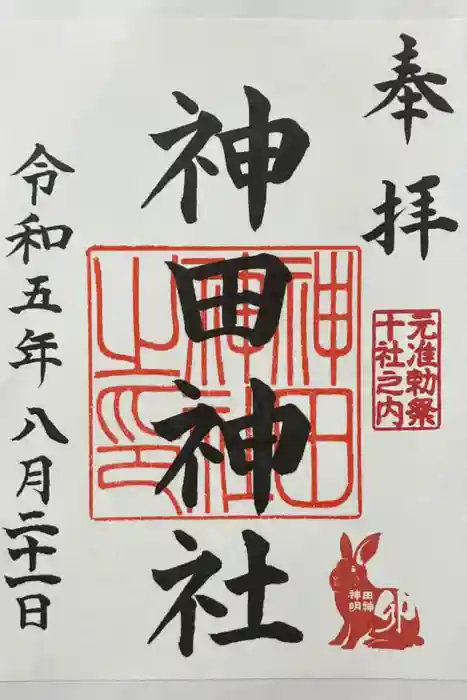 奉拝
元准勅祭
十社之内
神田神明
卯
神田神社
神田
神社
之印
令和五年八月二十一日